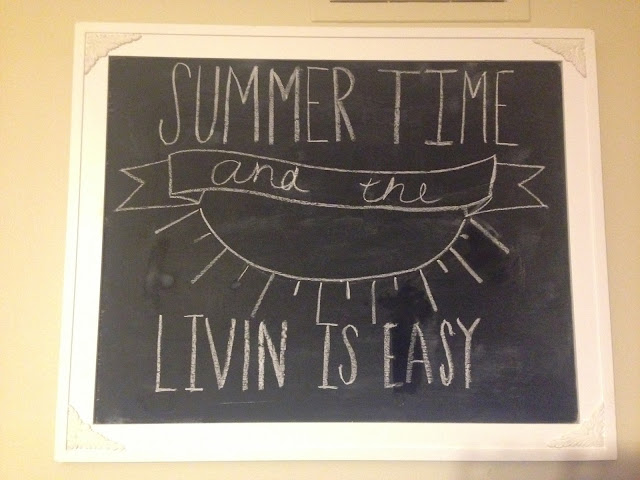 SUMMER TIME
and the
LIVIN IS EASY